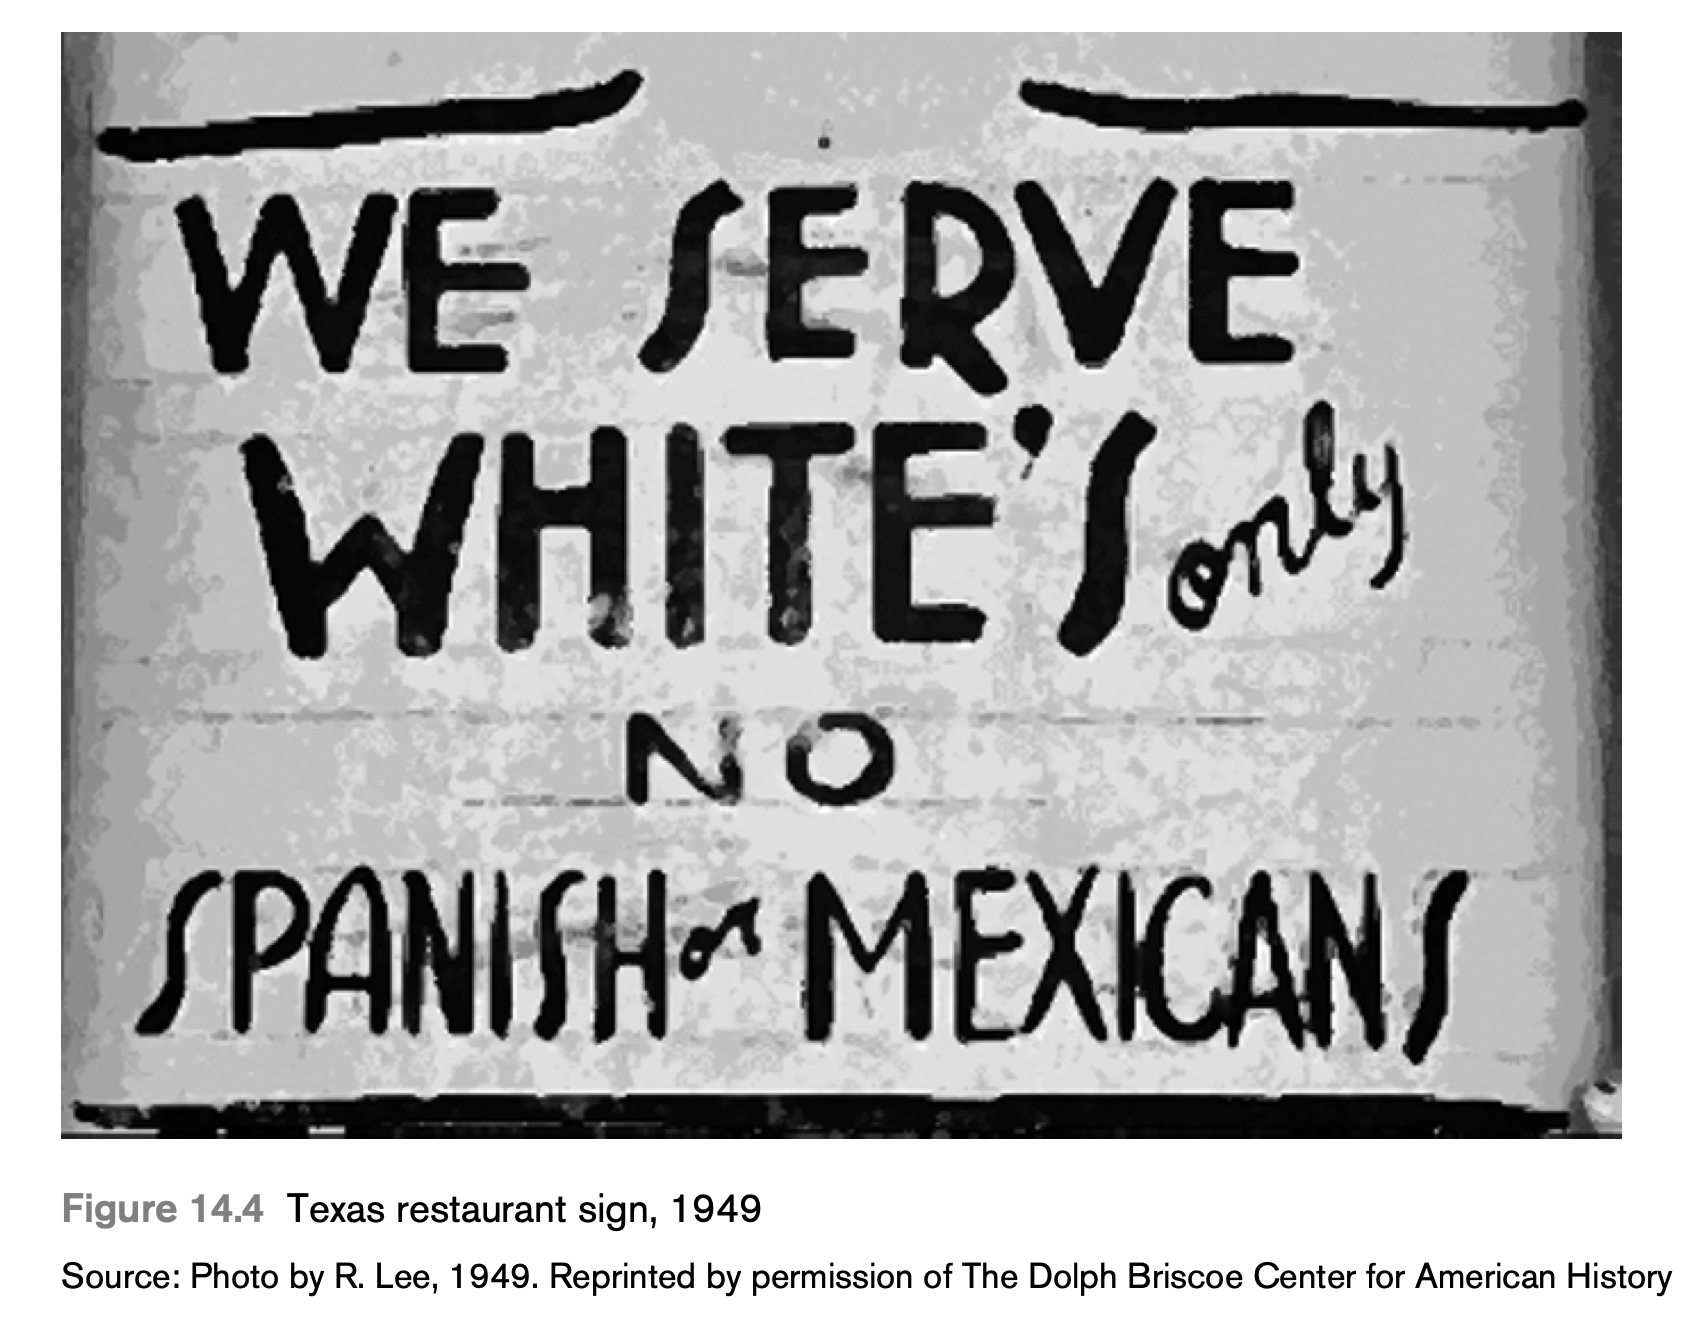 WE SERVE
WHITE'S only
NO
SPANISH or MEXICANS
Figure 14.4 Texas restaurant sign, 1949
Source: Photo by R. Lee, 1949. Reprinted by permission of The Dolph Briscoe Center for American History